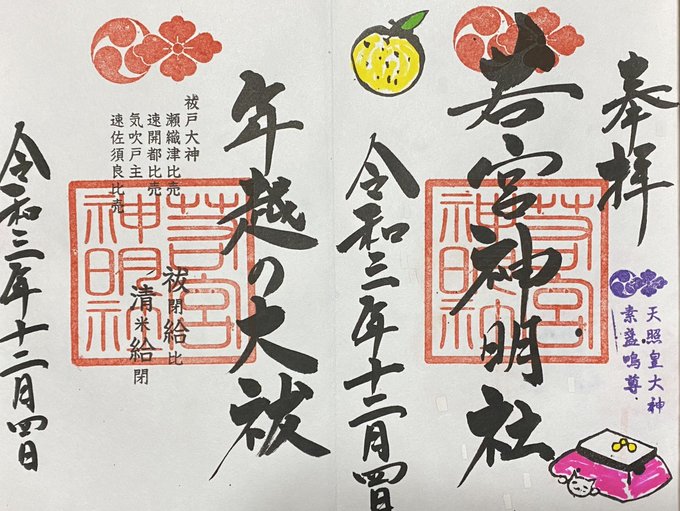 奉拝
天照皇大神
素盞嗚尊
若宮神明社
令和三年十二月四日
若宮
神明社
年越の大祓
祓戸大神
瀬織津比売
速開都比売
気吹戸主
速佐須良比売
祓閉給比
清米給閉
令和三年十二月四日
若宮
神明社